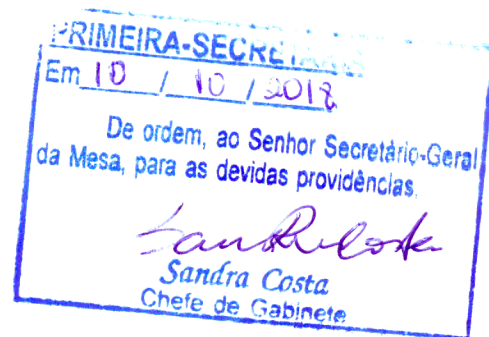 PRIMEIRA-SECRETARIA
Em 10 / 10 / 2018
De ordem, ao Senhor Secretário-Geral
da Mesa, para as devidas providências.
Sandra Costa
Sandra Costa
Chefe de Gabinete